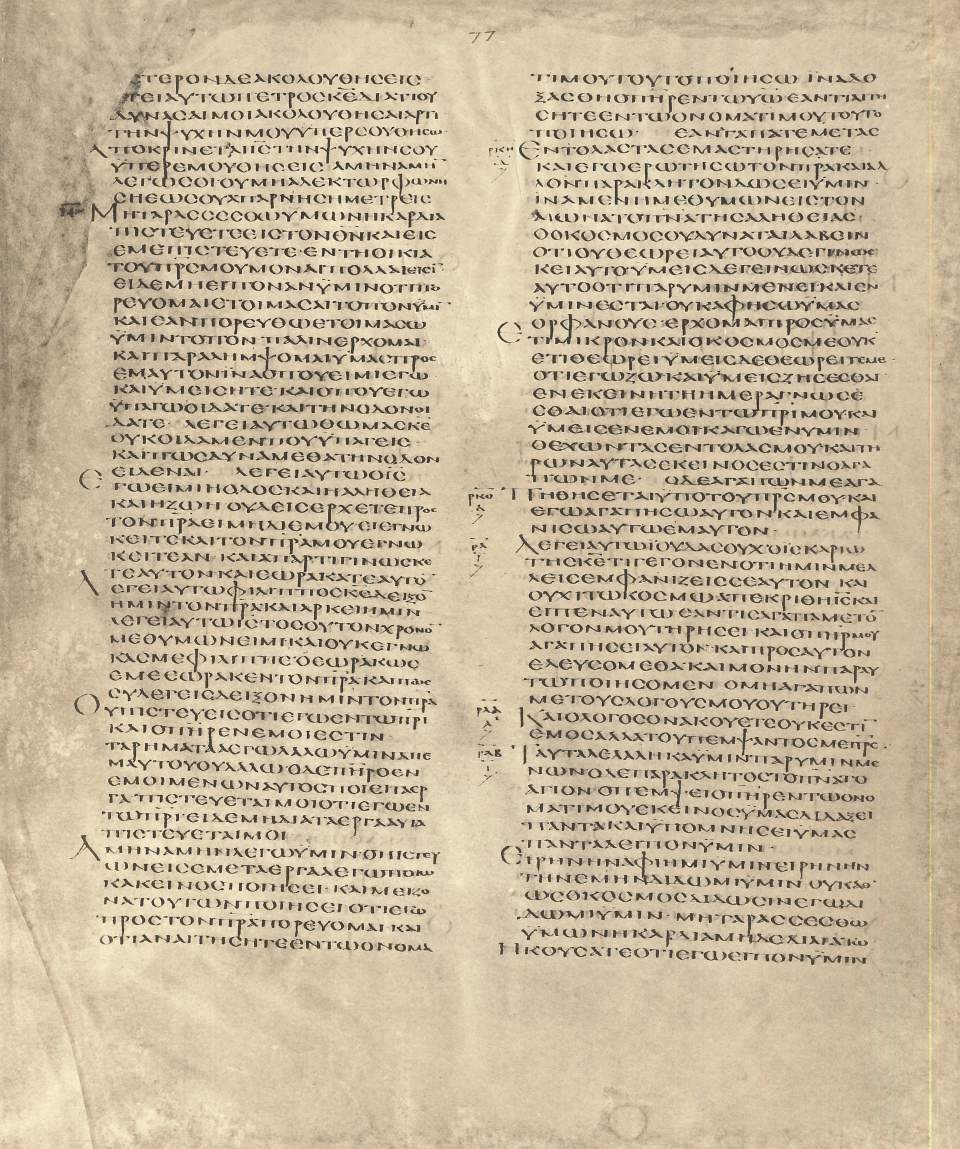 77
ϹΤΕΡΟΝΔΕΑΚΟΛΟΥΘΗϹΕΙϹ
ΛΕΓΕΙΑΥΤΩΠΕΤΡΟϹΚΕΔΙΑΤΙΟΥ
ΔΥΝΑϹΑΙΜΟΙΑΚΟΛΟΥΘΗϹΕΑΡΤΙ
ΤΗΝΨΥΧΗΝΜΟΥΥΠΕΡϹΟΥΘΗϹΩ·
ΑΠΟΚΡΙΝΕΤΑΙΙϹΤΗΝΨΥΧΗΝϹΟΥ
ΥΠΕΡΕΜΟΥΘΗϹΕΙϹ· ΑΜΗΝΑΜΗ̅
ΛΕΓΩϹΟΙΟΥΜΗΑΛΕΚΤΩΡΦΩΝΗ
ϹΗΕΩϹΟΥΑΠΑΡΝΗϹΗΜΕΤΡΕΙϹ
ΜΗΤΑΡΑϹϹΕϹΘΩΥΜΩΝΗΚΑΡΔΙΑ
ΠΙϹΤΕΥΕΤΕΕΙϹΤΟΝΘ̅Ν̅ΚΑΙΕΙϹ
ΕΜΕΠΙϹΤΕΥΕΤΕ·ΕΝΤΗΟΙΚΙΑ
ΤΟΥΠ̅Ρ̅ϹΜΟΥΜΟΝΑΙΠΟΛΛΑΙΕΙϹΙ̅
ΕΙΔΕΜΗΕΙΠΟΝΑΝΫΜΙΝΟΤΙΠΟ
ΡΕΥΟΜΑΙΕΤΟΙΜΑϹΑΙΤΟΠΟΝΫΜΙ̅
ΚΑΙΕΑΝΠΟΡΕΥΘΩΕΤΟΙΜΑϹΩ
ΫΜΙΝΤΟΠΟΝ·ΠΑΛΙΝΕΡΧΟΜΑΙ
ΚΑΙΠΑΡΑΛΗΜΨΟΜΑΙΫΜΑϹΠΡΟϹ
ΕΜΑΥΤΟΝΙΝΑΟΠΟΥΕΙΜΙΕΓΩ
ΚΑΙΫΜΕΙϹΗΤΕ·ΚΑΙΟΠΟΥΕΓΩ
ΫΠΑΓΩΟΙΔΑΤΕ·ΚΑΙΤΗΝΟΔΟΝΟΙ
ΔΑΤΕ· ΛΕΓΕΙΑΥΤΩΘΩΜΑϹΚ̅Ε̅
ΟΥΚΟΙΔΑΜΕΝΠΟΥΫΠΑΓΕΙϹ
ΚΑΙΠΩϹΔΥΝΑΜΕΘΑΤΗΝΟΔΟΝ
ΕΙΔΕΝΑΙ· ΛΕΓΕΙΑΥΤΩΟΙ̅Ϲ̅
ΕΓΩΕΙΜΙΗΟΔΟϹΚΑΙΗΑΛΗΘΕΙΑ
ΚΑΙΗΖΩΗ·ΟΥΔΕΙϹΕΡΧΕΤΕΠΡΟϹ
ΤΟΝΠ̅Ρ̅ΑΕΙΜΗΔΙΕΜΟΥ·ΕΙΕΓΝΩ
ΚΕΙΤΕΚΑΙΤΟΝΠ̅Ρ̅ΑΜΟΥΕΓΝΩ
ΚΕΙΤΕΑΝ·ΚΑΙΑΠΑΡΤΙΓΙΝΩϹΚΕ
ΤΕΑΥΤΟΝ·ΚΑΙΕΩΡΑΚΑΤΕΑΥΤΟ̅
ΛΕΓΕΙΑΥΤΩΦΙΛΙΠΠΟϹΚ̅Ε̅ΔΕΙΞΟ̅
ΗΜΙΝΤΟΝΠ̅Ρ̅ΑΚΑΙΑΡΚΕΙΗΜΙΝ
ΛΕΓΕΙΑΥΤΩΙ̅Ϲ̅ΤΟϹΟΥΤΟΝΧΡΟΝΟ̅
ΜΕΘΥΜΩΝΕΙΜΗΚΑΙΟΥΚΕΓΝΩ
ΚΑϹΜΕΦΙΛΙΠΠΕ·ΟΕΩΡΑΚΩϹ
ΕΜΕΕΩΡΑΚΕΝΤΟΝΠ̅Ρ̅ΑΚΑΙΠΩϹ
ϹΥΛΕΓΕΙϹΔΕΙΞΟΝΗΜΙΝΤΟΝΠ̅Ρ̅Α
ΟΥΠΙϹΤΕΥΕΙϹΟΤΙΕΓΩΕΝΤΩΠ̅Ρ̅Ι
ΚΑΙΟΠ̅Η̅Ρ̅ΕΝΕΜΟΙΕϹΤΙΝ·
ΤΑΡΗΜΑΤΑΑΕΓΩΛΑΛΩΫΜΙΝΑΠΕ
ΜΑΥΤΟΥΟΥΛΑΛΩ·ΟΔΕΠ̅Η̅Ρ̅ΟΕΝ
ΕΜΟΙΜΕΝΩΝΑΥΤΟϹΠΟΙΕΙΤΑΕΡ
ΓΑ·ΠΙϹΤΕΥΕΤΑΙΜΟΙΟΤΙΕΓΩΕΝ
ΤΩΠ̅Ρ̅Ι·ΕΙΔΕΜΗΔΙΑΤΑΕΡΓΑΑΥΤΑ
ΠΙϹΤΕΥΕΤΑΙΜΟΙ
ΑΜΗΝΑΜΗΝΛΕΓΩΫΜΙΝ·ΟΠΙϹΤΕΥ
ΩΝΕΙϹΕΜΕΤΑΕΡΓΑΑΕΓΩΠΟΙΩ
ΚΑΚΕΙΝΟϹΠΟΙΗϹΕΙ·ΚΑΙΜΕΙΖΟ
ΝΑΤΟΥΤΩΝΠΟΙΗϹΕΙΟΤΙΕΓΩ
ΠΡΟϹΤΟΝΠ̅Ρ̅ΑΠΟΡΕΥΟΜΑΙ·ΚΑΙ
ΟΤΙΑΝΑΙΤΗϹΗΤΕΕΝΤΩΟΝΟΜΑ
ΤΙΜΟΥΤΟΥΤΟΠΟΙΗϹΩ ΙΝΑΔΟ
ΞΑϹΘΗΟΠ̅Η̅Ρ̅ΕΝΤΩΥ̅Ω̅·ΕΑΝΤΙΑΙΤΗ
ϹΗΤΕΕΝΤΩΟΝΟΜΑΤΙΜΟΥΤΟΥΤΟ
ΠΟΙΗϹΩ· ΕΑΝΑΓΑΠΑΤΕΜΕΤΑϹ
ΕΝΤΟΛΑϹΤΑϹΕΜΑϹΤΗΡΗϹΑΤΕ
ΚΑΙΕΓΩΕΡΩΤΗϹΩΤΟΝΠ̅Ρ̅ΑΚΑΙΑΛ
ΛΟΝΠΑΡΑΚΛΗΤΟΝΔΩϹΕΙΫΜΙΝ·
ΙΝΑΜΕΝΗΜΕΘΥΜΩΝΕΙϹΤΟΝ
ΑΙΩΝΑΤΟΠ̅Ν̅ΑΤΗϹΑΛΗΘΕΙΑϹ
ΟΟΚΟϹΜΟϹΟΥΔΥΝΑΤΑΙΛΑΒΕΙΝ
ΟΤΙΟΥΘΕΩΡΕΙΑΥΤΟΟΥΔΕΓΙΝΩϹ
ΚΕΙΑΥΤΟΫΜΕΙϹΔΕΓΕΙΝΩϹΚΕΤΕ
ΑΥΤΟΟΤΙΠΑΡΥΜΙΝΜΕΝΕΙΚΑΙΕΝ
ΫΜΙΝΕϹΤΑΙΟΥΚΑΦΗϹΩΫΜΑϹ
ΟΡΦΑΝΟΥϹ·ΕΡΧΟΜΑΙΠΡΟϹΫΜΑϹ
ΕΤΙΜΙΚΡΟΝΚΑΙΟΚΟϹΜΟϹΜΕΟΥΚ
ΕΤΙΘΕΩΡΕΙΫΜΕΙϹΔΕΘΕΩΡΕΙΤΕΜΕ·
ΟΤΙΕΓΩΖΩΚΑΙΫΜΕΙϹΖΗϹΕϹΘΑΙ
ΕΝΕΚΕΙΝΗΤΗΗΜΕΡΑΓΝΩϹΕ
ϹΘΑΙΟΤΙΕΓΩΕΝΤΩΠ̅Ρ̅ΙΜΟΥ·ΚΑΙ
ΥΜΕΙϹΕΝΕΜΟΙΚΑΓΩΕΝΥΜΙΝ·
ΟΕΧΩΝΤΑϹΕΝΤΟΛΑϹΜΟΥΚΑΙΤΗ
ΡΩΝΑΥΤΑϹΕΚΕΙΝΟϹΕϹΤΙΝΟΑΓΑ
ΠΩΝΜΕ· ΟΔΕΑΓΑΠΩΝΜΕΑΓΑ
ΠΗΘΗϹΕΤΑΙΥΠΟΤΟΥΠ̅Ρ̅ϹΜΟΥΚΑΙ
ΕΓΩΑΓΑΠΗϹΩΑΥΤΟΝ·ΚΑΙΕΜΦΑ
ΝΙϹΩΑΥΤΩΕΜΑΥΤΟΝ·
ΛΕΓΕΙΑΥΤΩΪΟΥΔΑϹΟΥΧΟΙϹΚΑΡΙΩ
ΤΗϹΚ̅Ε̅ΤΙΓΕΓΟΝΕΝΟΤΙΗΜΙΝΜΕΛ
ΛΕΙϹΕΜΦΑΝΙΖΕΙΝϹΕΑΥΤΟΝ·ΚΑΙ
ΟΥΧΙΤΩΚΟϹΜΩ·ΑΠΕΚΡΙΘΗΙ̅Ϲ̅ΚΑΙ
ΕΙΠΕΝΑΥΤΩΕΑΝΤΙϹΑΓΑΠΑΜΕΤΟ̅
ΛΟΓΟΝΜΟΥΤΗΡΗϹΕΙ·ΚΑΙΟΠ̅Η̅Ρ̅ΜΟΥ
ΑΓΑΠΗϹΕΙΑΥΤΟΝ·ΚΑΙΠΡΟϹΑΥΤΟΝ
ΕΛΕΥϹΟΜΕΘΑΚΑΙΜΟΝΗΝΠΑΡΑΥ
ΤΩΠΟΙΗϹΟΜΕΝ· ΟΜΗΑΓΑΠΩΝ
ΜΕΤΟΥϹΛΟΓΟΥϹΜΟΥΟΥΤΗΡΕΙ·
ΚΑΙΟΛΟΓΟϹΟΝΑΚΟΥΕΤΕΟΥΚΕϹΤΙ̅
ΕΜΟϹΑΛΛΑΤΟΥΠΕΜΨΑΝΤΟϹΜΕΠ̅Ρ̅Ϲ·
ΤΑΥΤΑΛΕΛΑΛΗΚΑΫΜΙΝΠΑΡΥΜΙΝΜΕ
ΝΩΝ·ΟΔΕΠΑΡΑΚΛΗΤΟϹΤΟΠ̅Ν̅ΑΤΟ
ΑΓΙΟΝ·ΟΠΕΜΨΕΙΟΠ̅Η̅Ρ̅ΕΝΤΩΟΝΟ
ΜΑΤΙΜΟΥΕΚΕΙΝΟϹΫΜΑϹΔΙΔΑΞΕΙ
ΠΑΝΤΑΚΑΙΫΠΟΜΝΗϹΕΙΫΜΑϹ
ΠΑΝΤΑΑΕΙΠΟΝΫΜΙΝ·
ΕΙΡΗΝΗΝΑΦΙΗΜΙΫΜΙΝΕΙΡΗΝΗΝ
ΤΗΝΕΜΗΝΔΙΔΩΜΙΫΜΙΝ·ΟΥΚΑΘ
ΩϹΟΚΟϹΜΟϹΔΙΔΩϹΙΝΕΓΩΔΙ
ΔΩΜΙΫΜΙΝ· ΜΗΤΑΡΑϹϹΕϹΘΩ
ΥΜΩΝΗΚΑΡΔΙΑΜΗΔΕΔΕΙΛΙΑΤΩ
ΗΚΟΥϹΑΤΕΟΤΙΕΓΩΕΙΠΟΝΫΜΙΝ